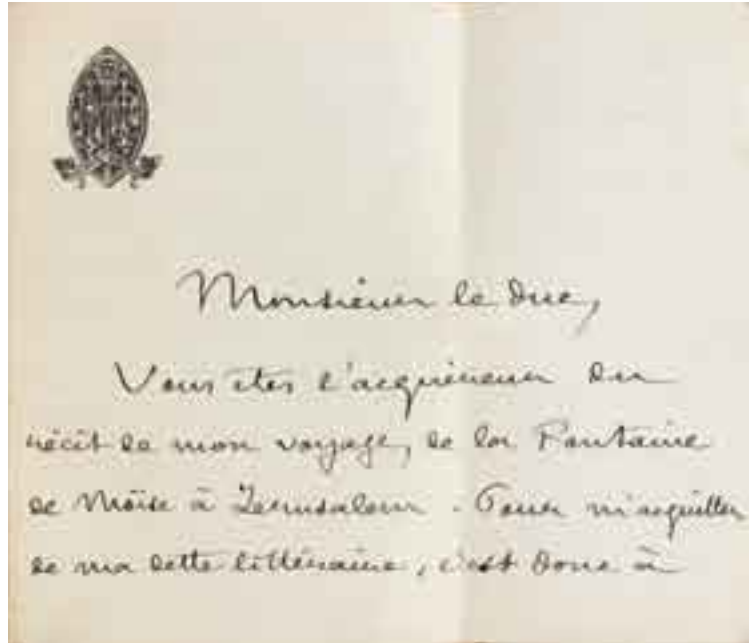 Monsieur le Duc,
Vous êtes l'acquéreur du
récit de mon voyage, de la Fontaine
de Moïse à Jérusalem. Pour m'acquitter
de ma dette littéraire, c'est donc à